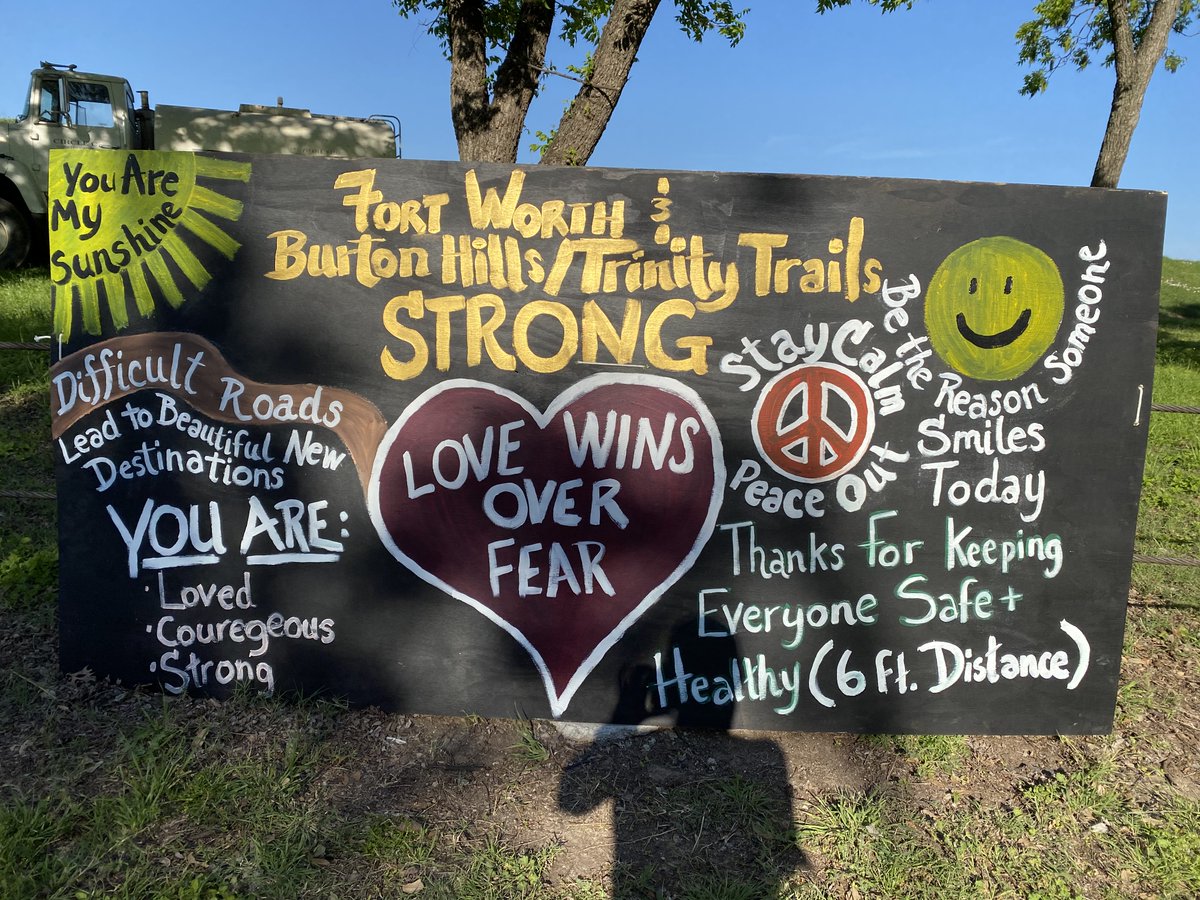 You Are
My
Sunshine
Fort Worth &
Burton Hills/Trinity Trails
STRONG
Difficult Roads
Lead to Beautiful New
Destinations
YOU ARE:
· Loved
· Couregeous
· Strong
LOVE WINS
OVER
FEAR
Stay Calm
Peace Out
Be the
Reason
Someone
Smiles
Today
Thanks for Keeping
Everyone Safe +
Healthy (6 Ft. Distance)